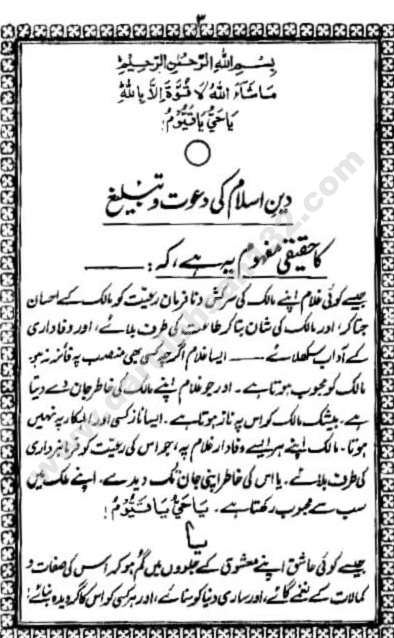 ۳
بِسْمِ اللهِ الرَّحْمٰنِ الرَّحِيْمِ
مَاشَاءَ اللهُ لَا قُوَّةَ اِلَّا بِاللهِ
يَا حَيُّ يَا قَيُّوْمُ!
دین اسلام کی دعوت و تبلیغ
کا حقیقی مفہوم یہ ہے، کہ: ــــــــ
جیسے کوئی غلام اپنے مالک کی سرکش و نافرمان رعیت کو مالک کے احسان
جتا کر، اور مالک کی شان بتا کر طاعت کی طرف بلائے، اور وفاداری
کے آداب سکھلائے ــــــ ایسا غلام اگرچہ کسی بھی منصب پہ فائز نہ ہو
مالک کو محبوب ہوتا ہے۔ اور جو غلام اپنے مالک کی خاطر جان دے دیتا
ہے۔ بیشک مالک کو اس پہ ناز ہوتا ہے۔ ایسا ناز کسی اور اہلکار پہ نہیں
ہوتا۔ مالک اپنے ہر ایسے وفادار غلام پہ، جو اس کی رعیت کو فرمانبرداری
کی طرف بلائے۔ یا اس کی خاطر اپنی جان تک دیدے، اپنے ملک میں
سب سے محبوب رکھتا ہے۔ يَا حَيُّ يَا قَيُّوْمُ!
یا
جیسے کوئی عاشق اپنے معشوق کے جلووں میں گم ہو کر، اس کی صفات و
کمالات کے نغمے گائے، اور ساری دنیا کو سنائے، اور ہر کسی کو اس کا گرویدہ بنائے!